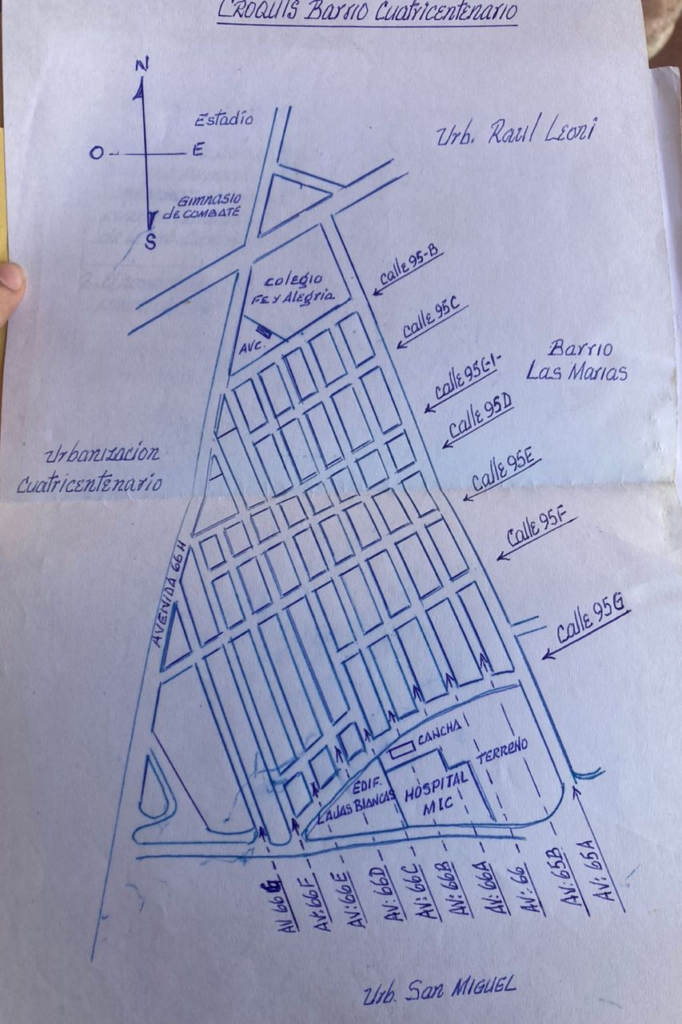 CROQUIS Barrio Cuatricentenario
N
Estadio
Urb. Raul Leoni
O
E
GIMNASIO
de COMBATE
S
COLEGIO
FE y Alegria
Calle 95-B
AVC.
Calle 95C
Barrio
Las Marias
Calle 95C-1-
Calle 95D
Urbanizacion
Cuatricentenario
Calle 95E
Calle 95F
AVENIDA 66H
Calle 95G
CANCHA
TERREÑO
EDIF.
LAJAS BLANCAS
HOSPITAL
MIC
AV 66G
AV: 66F
AV: 66E
AV: 66D
AV: 66C
AV: 66B
AV: 66A
AV: 66
AV: 65B
AV: 65A
Urb. San MIGUEL